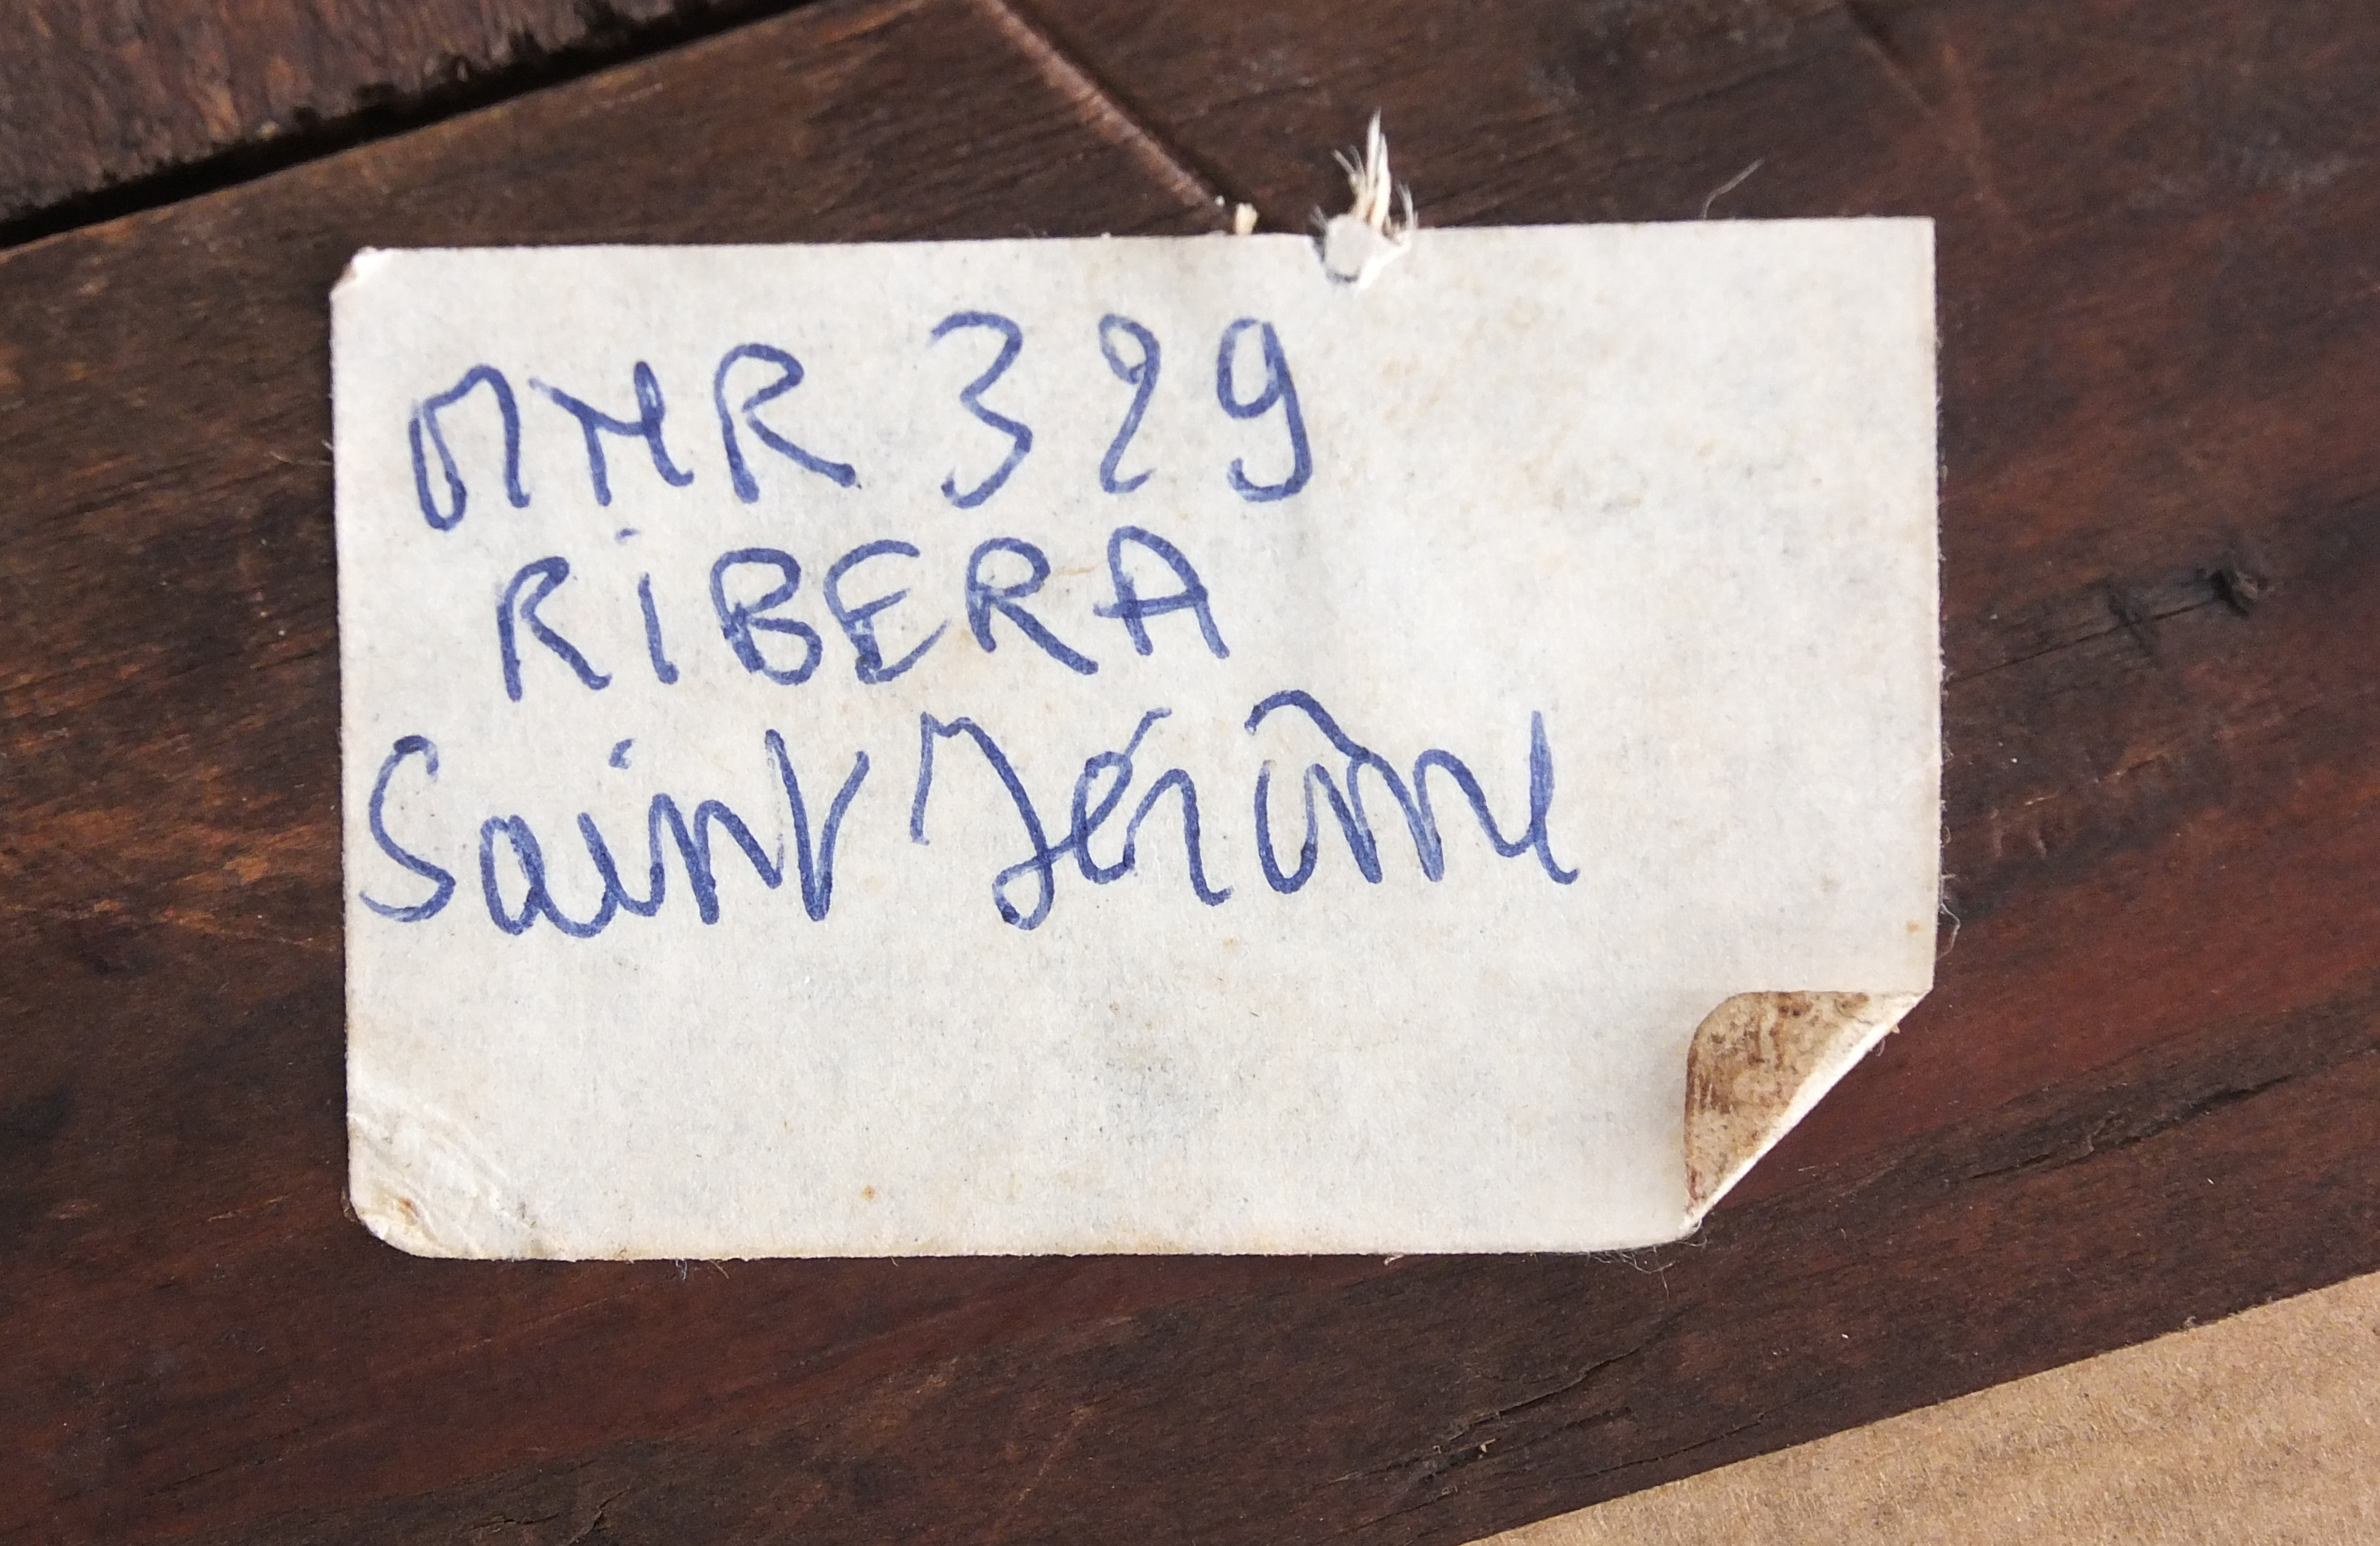 MNR 329
RiBERA
Saint Jérôme